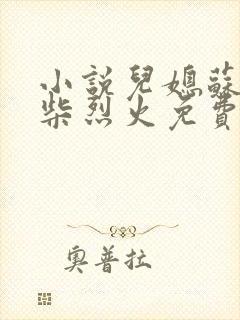 小説兒媳蘇
柴烈火免費
奧普拉